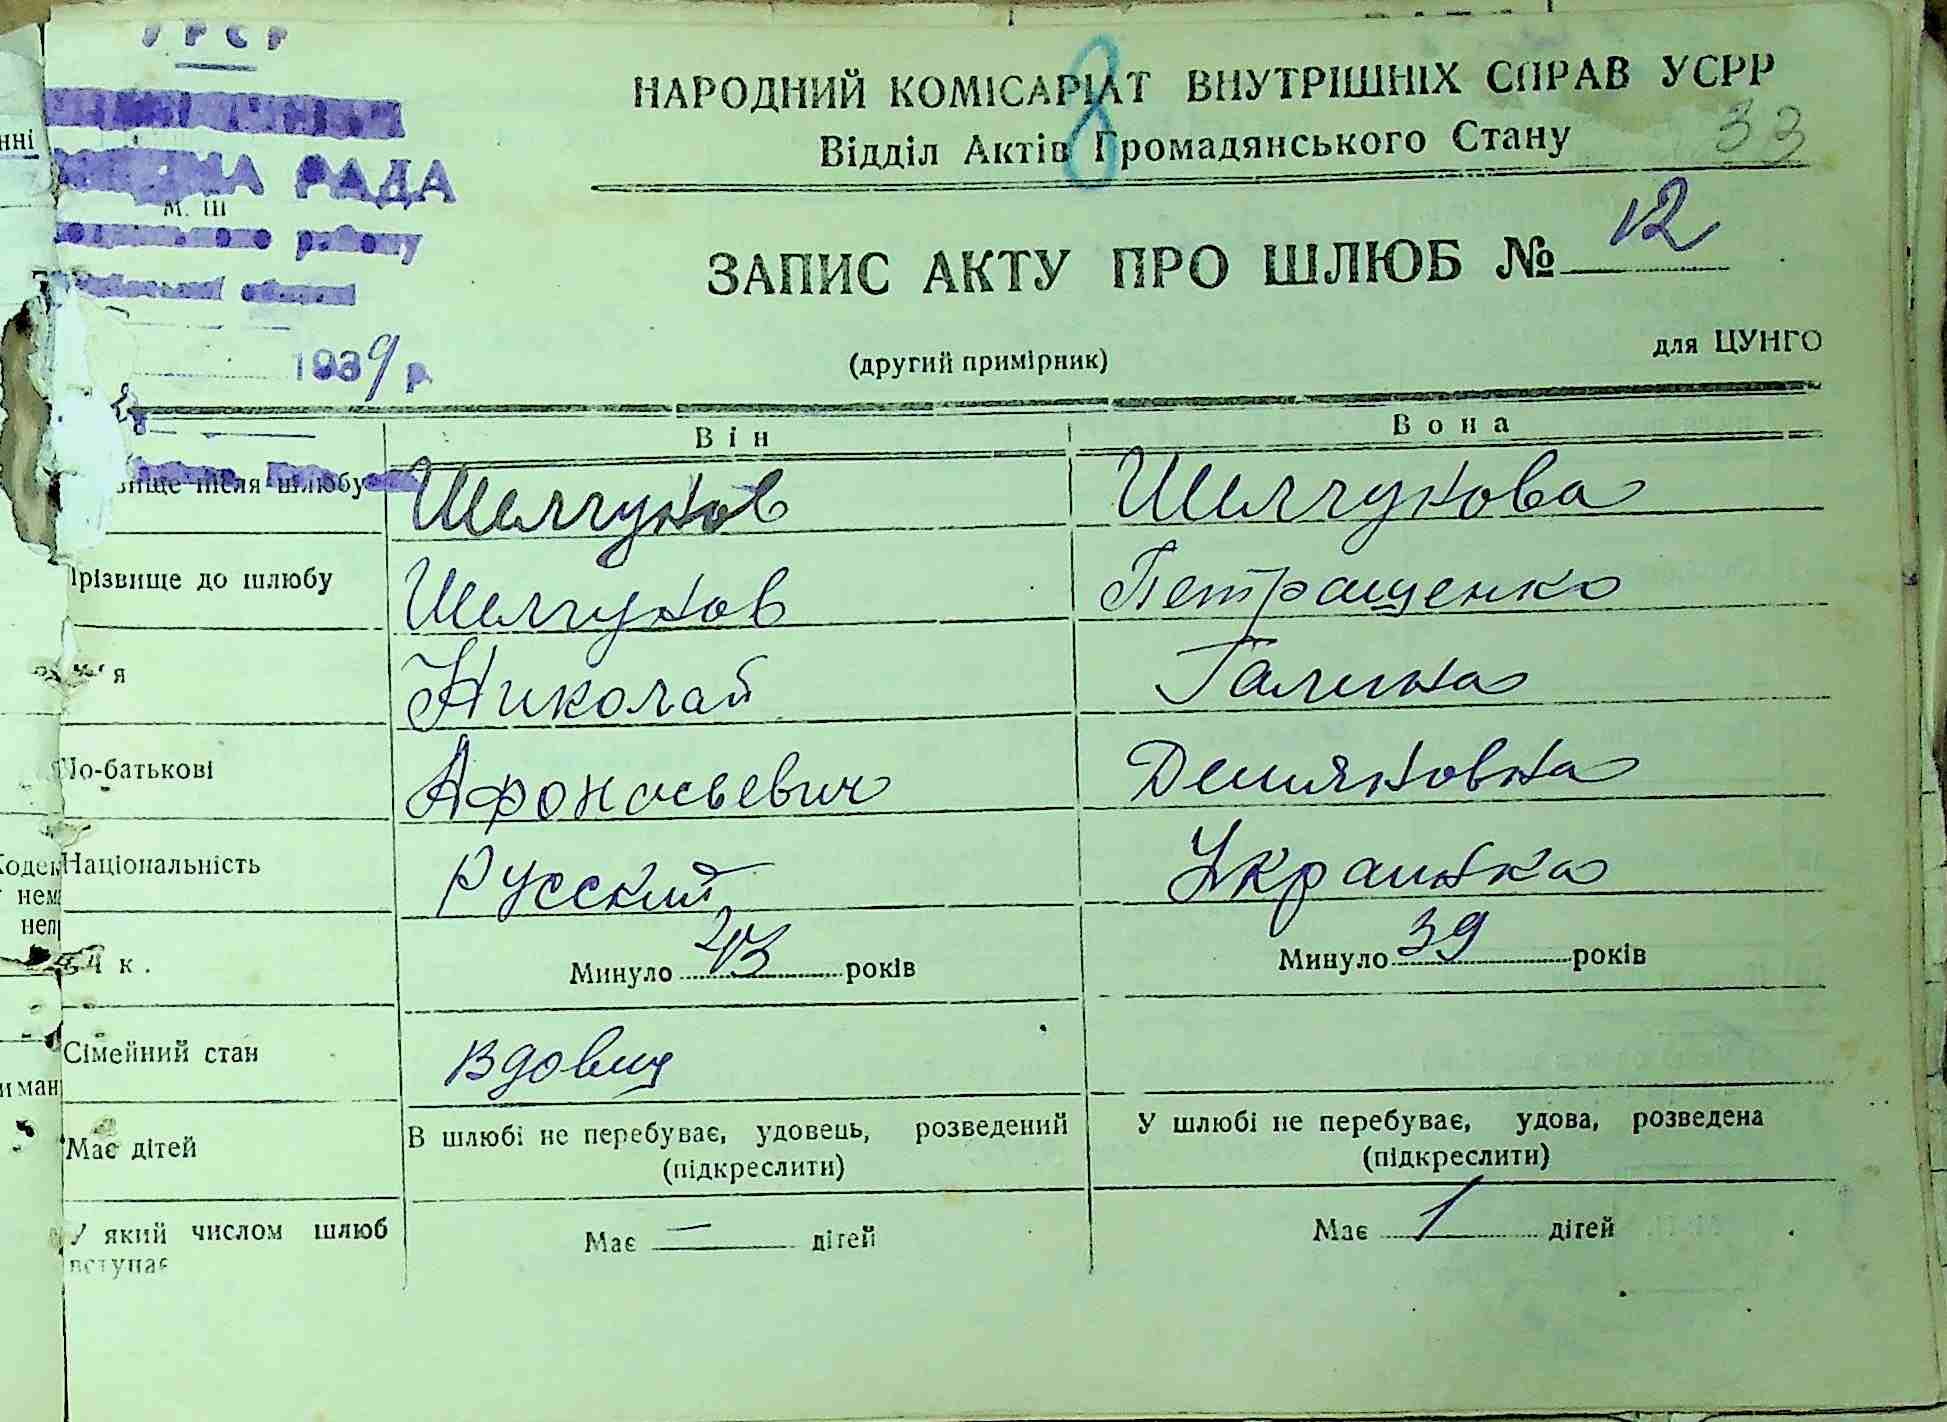 УРСР
РАДА
району
області
1939 р.
8
33
НАРОДНИЙ КОМІСАРІАТ ВНУТРІШНІХ СПРАВ УСРР
Відділ Актів Громадянського Стану
ЗАПИС АКТУ ПРО ШЛЮБ № 12
(другий примірник)
для ЦУНГО
Він Вона
після шлюбу Шелчуков Шелчукова
Прізвище до шлюбу Шелчуков Петращенко
Николай Галина
По-батькові Афонасьевич Демяновна
Національність Русский Украинка
Минуло 43 років Минуло 39 років
Сімейний стан вдовец
Має дітей В шлюбі не перебуває, удовець, розведений У шлюбі не перебуває, удова, розведена
(підкреслити) (підкреслити)
У який числом шлюб вступає Має — дітей Має 1 дітей